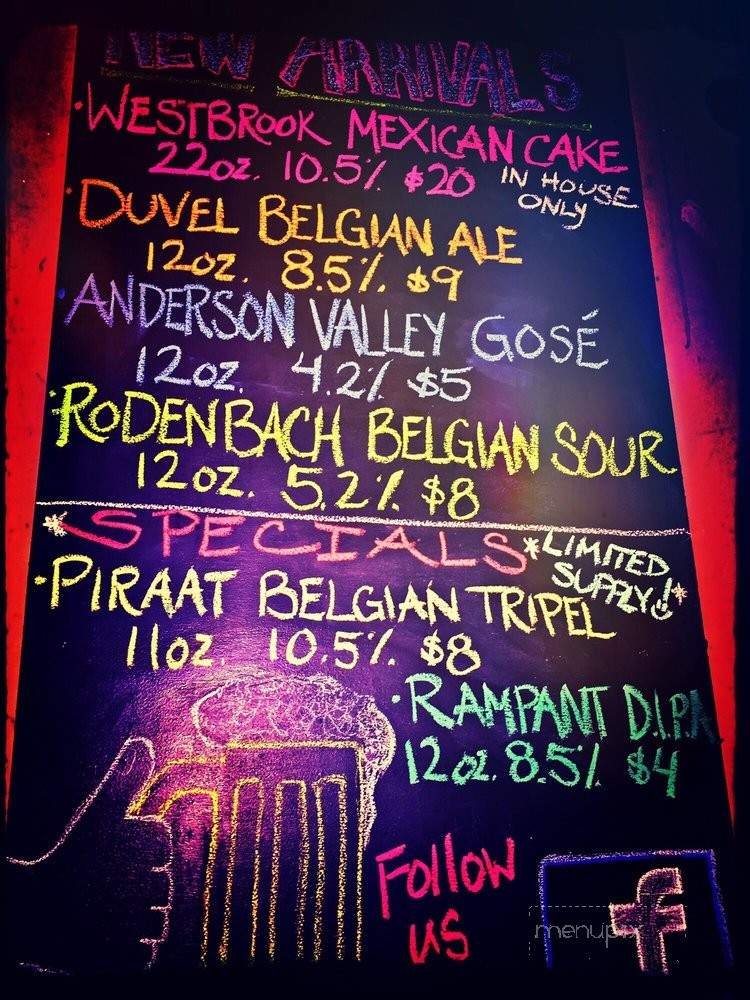 NEW ARRIVALS
· WESTBROOK MEXICAN CAKE
22oz. 10.5% $20 IN HOUSE
ONLY
· DUVEL BELGIAN ALE
12oz. 8.5% $9
ANDERSON VALLEY GOSÉ
12oz. 4.2% $5
· RODENBACH BELGIAN SOUR
12oz. 5.2% $8
* SPECIALS * LIMITED
SUPPLY! *
· PIRAAT BELGIAN TRIPEL
11oz. 10.5% $8
· RAMPANT D.I.P.A
12oz. 8.5% $4
FOLLOW
US
f
menupix